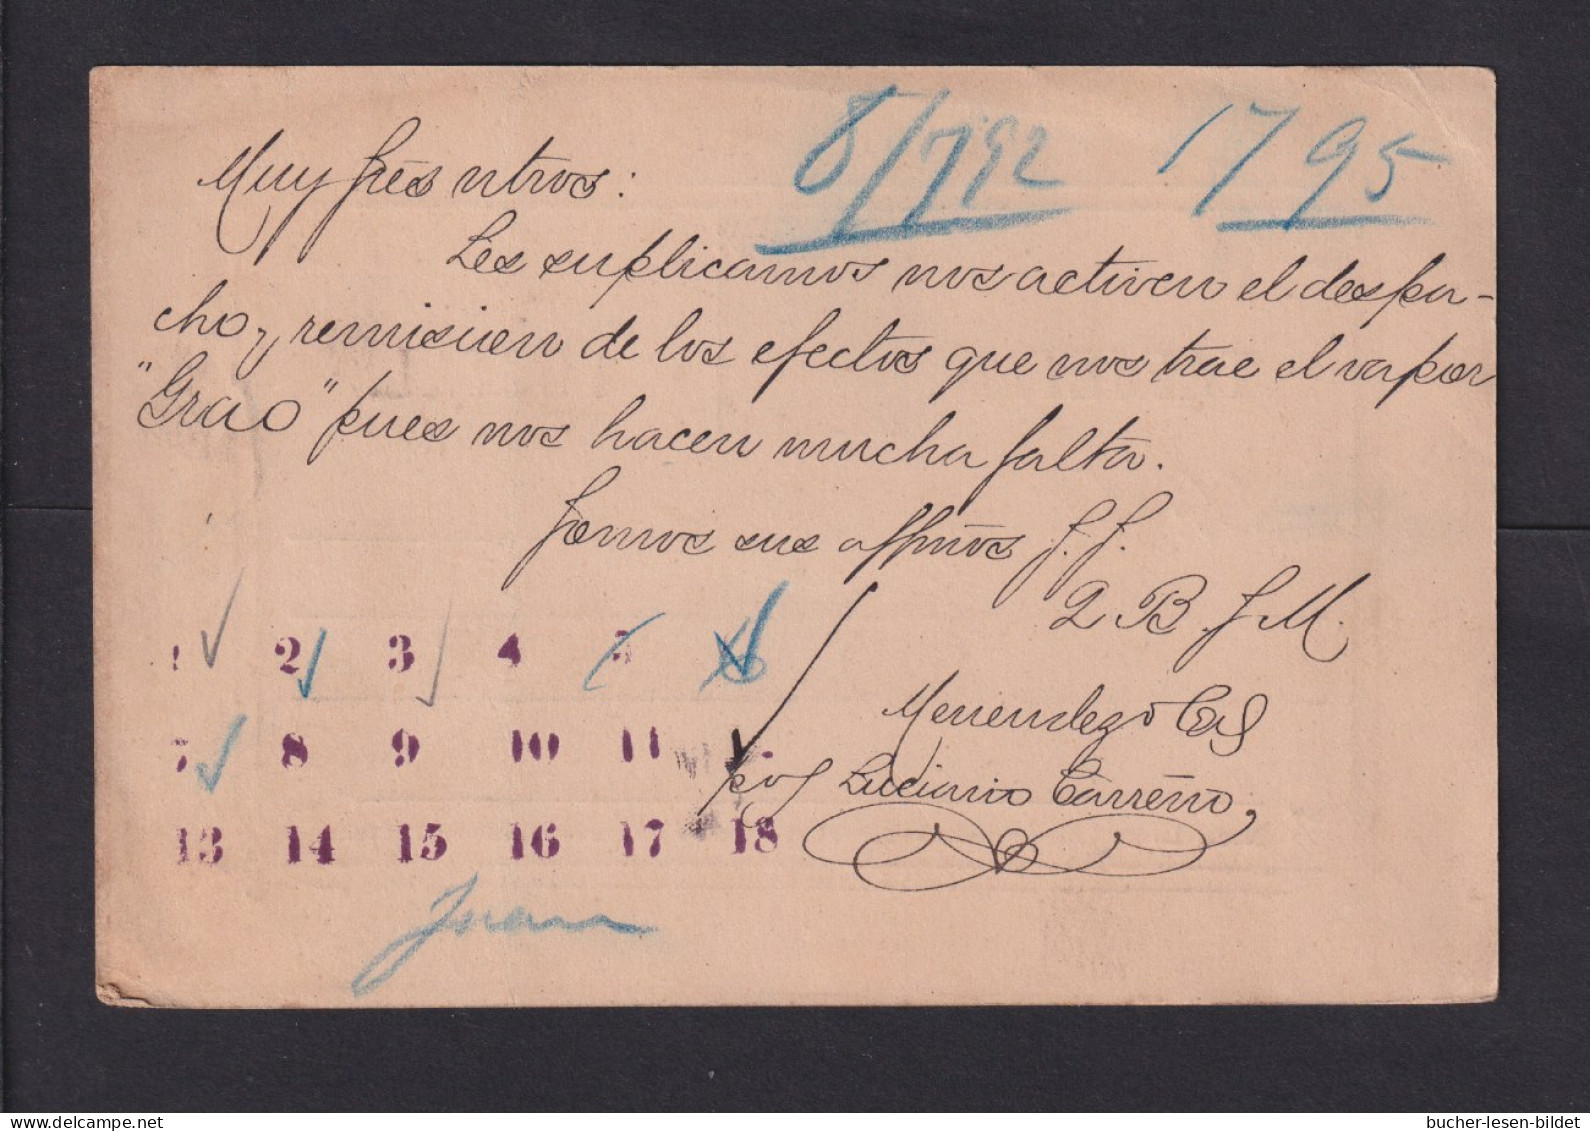 8/7 92 1795
Muy Srês ntros:
Les suplicamos nos activen el despa-
cho, remisien de los efectos que nos trae el vapor
"Grao" pues nos hacen mucha falta.
Somos sus affmos S. S.
Q B S M.
Menendez y Ca
po/ Luciano Carreño,
1 2 3 4 5 6
7 8 9 10 11
13 14 15 16 17 18
Juan
bucher-lesen-bildet